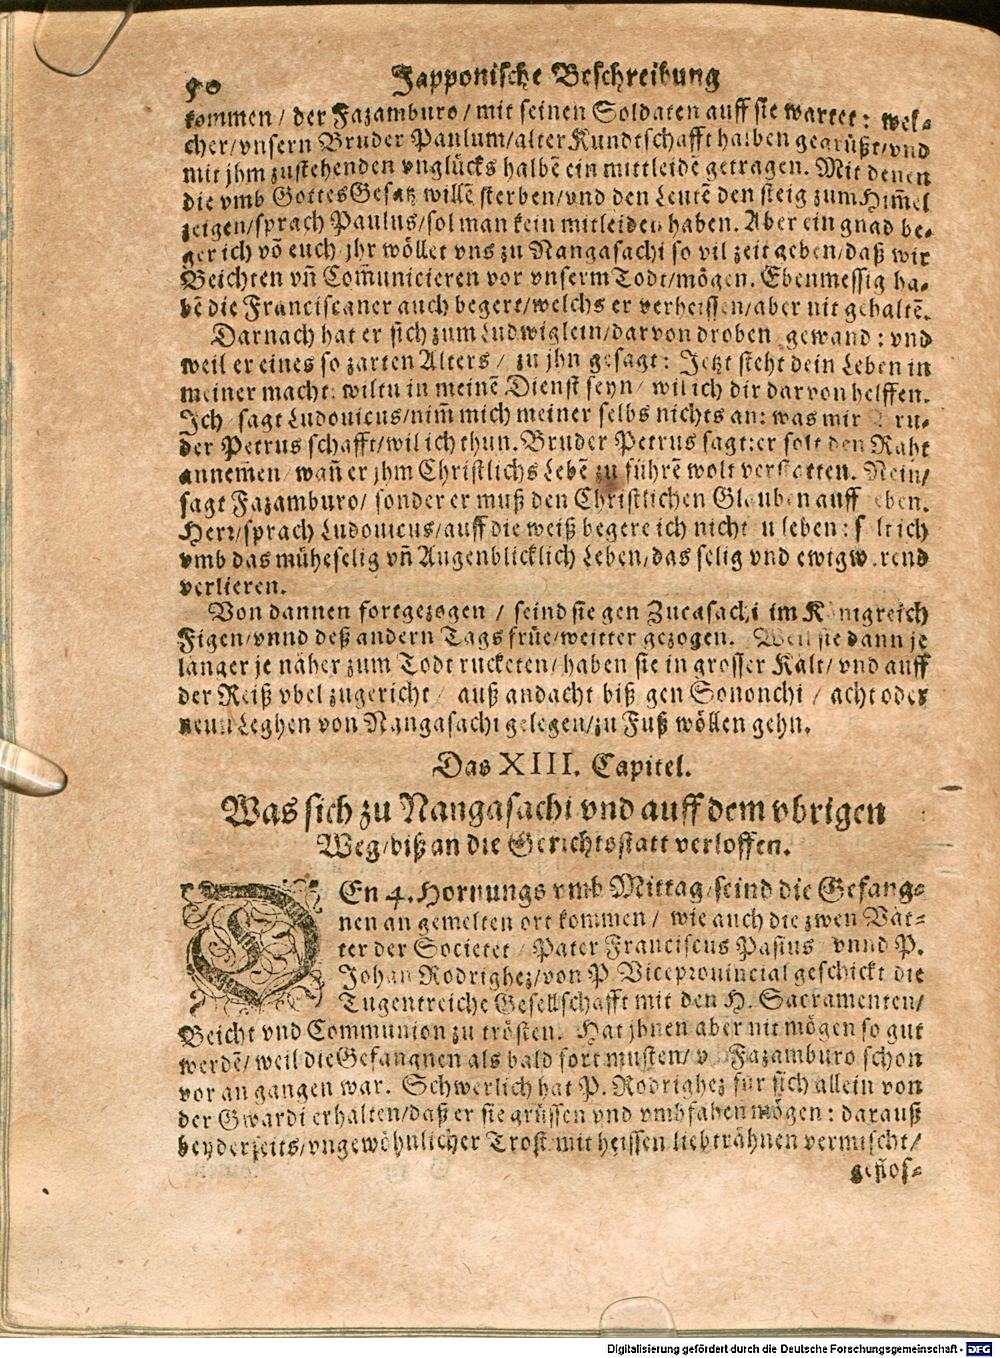 50 Japponische Beschreibung
kommen / der Fazamburo / mit seinen Soldaten auff sie wartet : wel-
cher/vnsern Bruder Paulum/alter Kundtschafft halben gegrüßt/vnd
mit jhm zustehenden vnglücks halbē ein mittleidē getragen. Mit denen
die vmb Gottes Gesatz willē sterben/vnd den Leutē den steig zum Him̄el
zeigen/sprach Paulus/sol man kein mitleiden haben. Aber ein gnad be-
ger ich vō euch/jhr wöllet vns zu Nangasachi so vil zeit geben/daß wir
Beichten vn̄ Com̄unicieren vor vnserm Todt/mögen. Ebenmessig ha-
bē die Franciscaner auch begert/welchs er verheissen/aber nit gehaltē.
Darnach hat er sich zum Ludwiglein/darvon droben gewand : vnd
weil er eines so zarten Alters / zu jhn gesagt : Jetzt steht dein Leben in
meiner macht: wiltu in meinē Dienst seyn/ wil ich dir darvon helffen.
Ich/sagt Ludouicus/nim̄ mich meiner selbs nichts an: was mir Bru-
der Petrus schafft/wil ich thun. Bruder Petrus sagt: er solt den Raht
annem̄en/wan̄ er jhm Christlichs Lebē zu führē wolt verstatten. Nein/
sagt Fazamburo/ sonder er muß den Christlichen Glauben auff geben.
Herr/sprach Ludouicus/auff die weiß begere ich nicht zu leben : solt ich
vmb das müheselig vn̄ Augenblicklich Leben/das selig vnd ewigwerend
verlieren.
Von dannen fortgezogen / seind sie gen Zucasachi im Königreich
Figen/vnnd deß andern Tags früe/weitter gezogen. Weil sie dann je
länger je näher zum Todt rucketen/haben sie in grosser Kält/vnd auff
der Reiß vbel zugericht / auß andacht biß gen Sononchi / acht oder
neun Leghen von Nangasachi gelegen/zu Fuß wöllen gehn.
Das XIII. Capitel.
Was sich zu Nangasachi vnd auff dem vbrigen
Weg/biß an die Gerichtsstatt verloffen.
DEn 4. Hornungs vmb Mittag/seind die Gefang-
nen an gemelten ort kommen / wie auch die zwen Vät-
ter der Societet / Pater Franciscus Pasius / vnnd P.
Johan Rodrighez/von P. Viceprouincial geschickt die
Tugentreiche Gesellschafft mit den H. Sacramenten/
Beicht vnd Communion zu trösten. Hat jhnen aber nit mögen so gut
werdē/weil die Gefangnen als bald fort musten/ Fazamburo schon
vor an gangen war. Schwerlich hat P. Rodrighez für sich allein von
der Gwardi erhalten/daß er sie grüssen vnd vmbfahen mögen : darauß
beyderseits/vngewöhnlicher Trost mit heissen liebträhnen vermischt/
gen̄os-
Digitalisierung gefördert durch die Deutsche Forschungsgemeinschaft - DFG